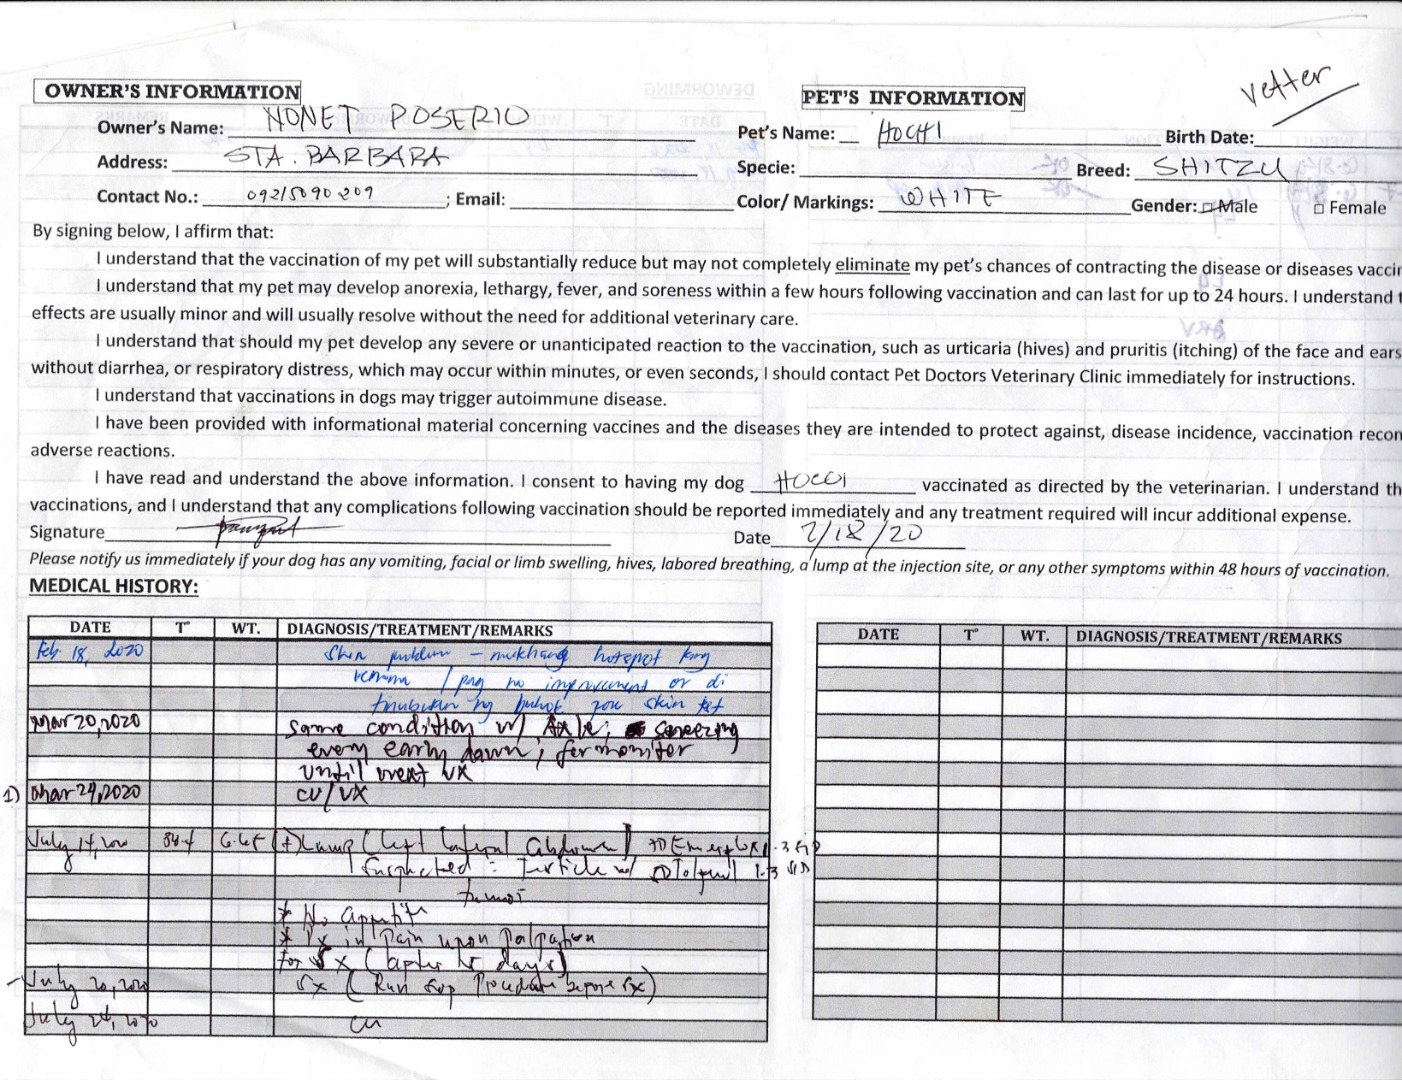 vetter
OWNER'S INFORMATION
PET'S INFORMATION
Owner's Name: NONET ROSERIO
Pet's Name: HOCHI
Birth Date:
Address: STA. BARBARA
Specie:
Breed: SHITZU
Contact No.: 09215090209 ; Email:
Color/ Markings: WHITE
Gender: □ Male □ Female
By signing below, I affirm that:
I understand that the vaccination of my pet will substantially reduce but may not completely eliminate my pet's chances of contracting the disease or diseases vaccin
I understand that my pet may develop anorexia, lethargy, fever, and soreness within a few hours following vaccination and can last for up to 24 hours. I understand t
effects are usually minor and will usually resolve without the need for additional veterinary care.
I understand that should my pet develop any severe or unanticipated reaction to the vaccination, such as urticaria (hives) and pruritis (itching) of the face and ears
without diarrhea, or respiratory distress, which may occur within minutes, or even seconds, I should contact Pet Doctors Veterinary Clinic immediately for instructions.
I understand that vaccinations in dogs may trigger autoimmune disease.
I have been provided with informational material concerning vaccines and the diseases they are intended to protect against, disease incidence, vaccination recon
adverse reactions.
I have read and understand the above information. I consent to having my dog HOCCI vaccinated as directed by the veterinarian. I understand th
vaccinations, and I understand that any complications following vaccination should be reported immediately and any treatment required will incur additional expense.
Signature
Date 2/18/20
Please notify us immediately if your dog has any vomiting, facial or limb swelling, hives, labored breathing, a lump at the injection site, or any other symptoms within 48 hours of vaccination.
MEDICAL HISTORY:
DATE T° WT. DIAGNOSIS/TREATMENT/REMARKS
DATE T° WT. DIAGNOSIS/TREATMENT/REMARKS
Feb. 18, 2020 Skin problem – mukhang hotspot
/ pag no improvement or di
ng buhok skin
Mar 20,2020 Same condition w/ sneezing
every early dawn; for monitor
until next vx
1) Mar 24,2020 CU/VX
July 14, 2020 (+) Lump (left lateral Abdomen)
Suspected: Testicle w/
tumor
* No appetite
* in Pain upon Palpation
for Sx (after 15 days)
July 20, 2020 Sx (Run Procedure before Sx)
July 24, 2020 CU